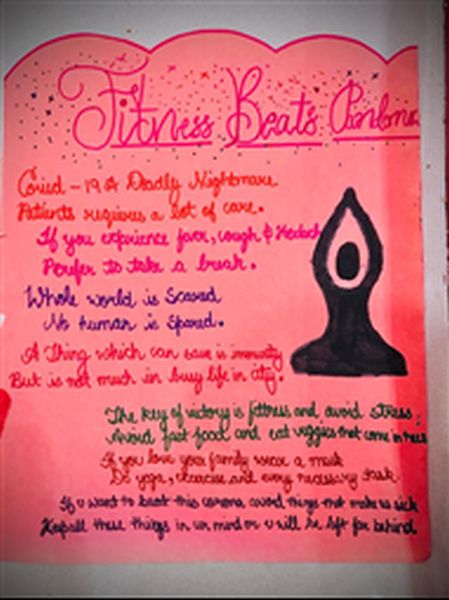 Fitness Beats
Covid - 19 A Deadly Nightmare
Patients requires a lot of care.
If you experience fever, cough & Headach
Perefer to take a break.
Whole world is Scared
No human is Spared.
A Thing which can save is immunity
But is not much in busy life in city.
The key of victory is fittness and avoid stress;
Avoid fast food and eat veggies that come in
If you love your family wear a mask
Do yoga, excercise and every necessary task.
If u want to beat this corona avoid things that make us sick
Keep all these things in ur mind or u will be left far behind